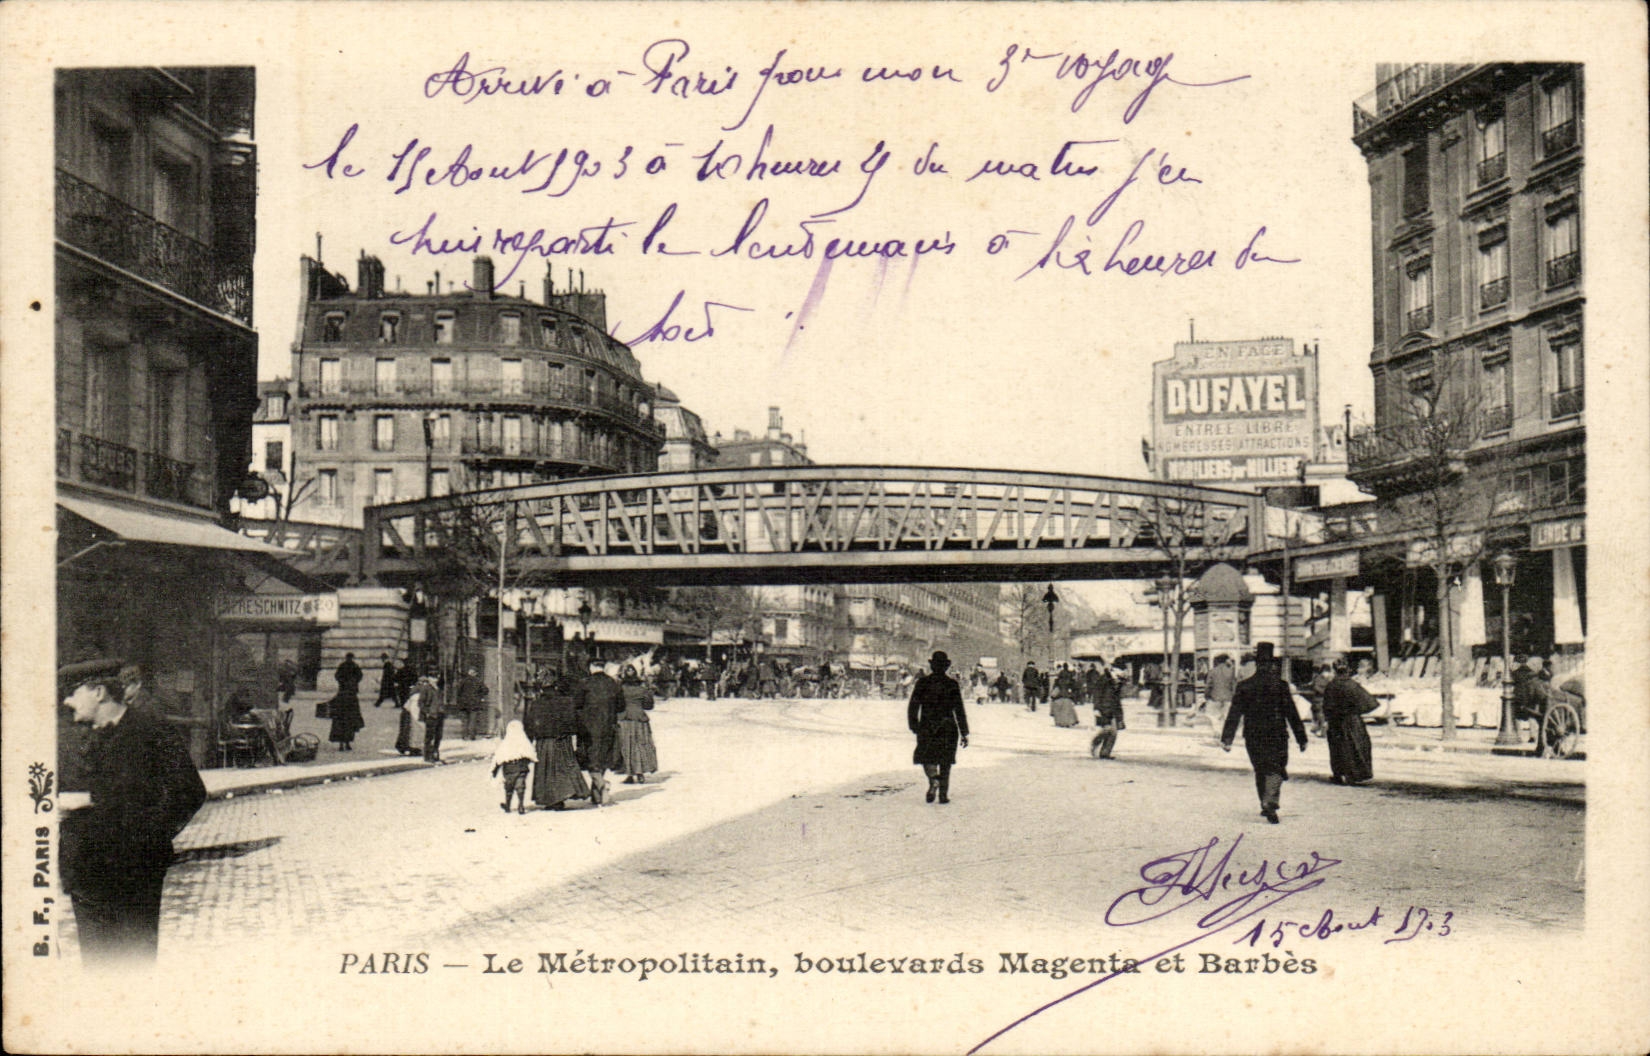 Arrivé à Paris pour mon 3e voyage
le 15 Aout 1903 à 10 heures du matin j'en
suis reparti le lendemain à heures du
soir
EN FACE
DUFAYEL
ENTRÉE LIBRE
NOMBREUSES ATTRACTIONS
MOBILIERS PAR MILLIERS
LINGE DE
SCHMITZ
15 Aout 1903
B. F., PARIS
PARIS — Le Métropolitain, boulevards Magenta et Barbès